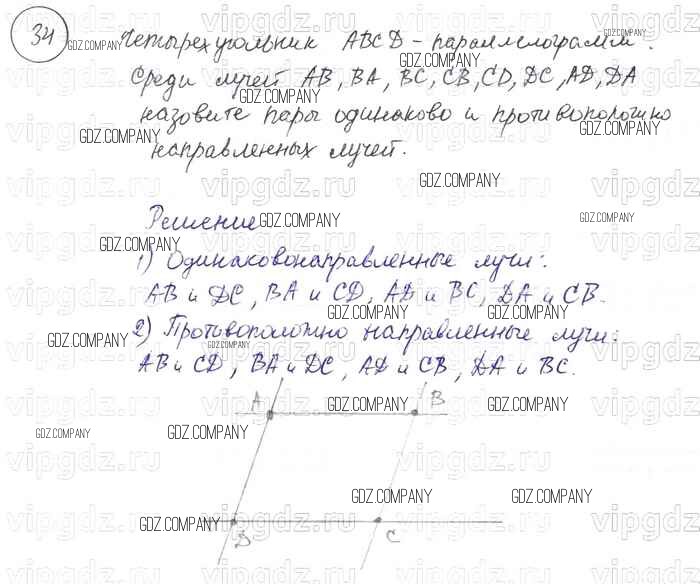 34
Четырехугольник ABCD - параллелограмм.
Среди лучей AB, BA, BC, CB, CD, DC, AD, DA
назовите пары одинаково и противоположно
направленных лучей.
Решение
1) Одинаковонаправленные лучи:
AB и DC, BA и CD, AD и BC, DA и CB.
2) Противоположно направленные лучи:
AB и CD, BA и DC, AD и CB, DA и BC.
A B
D C
GDZ.COMPANY
vipgdz.ru